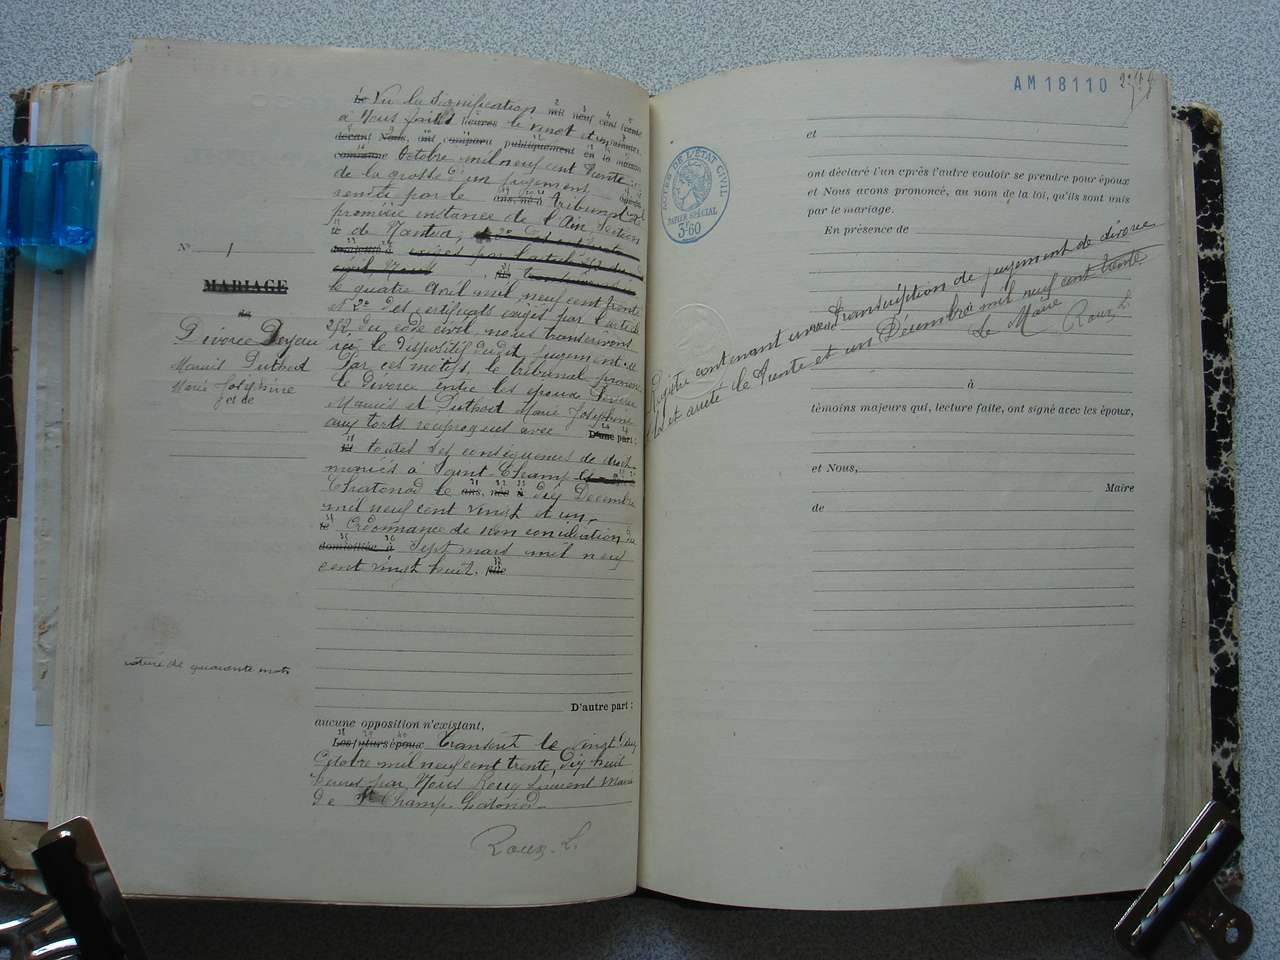 Nº 1
MARIAGE
de
Divorce
Mauris Duthod
Marie Joséphine
Vu la signification mil neuf cent trente
à Nous faite heures le vingt et
devant Nous, ont comparu publiquement en la maison
commune Octobre mil neuf cent trente
de la grosse d'un jugement
rendu par le ans, né à tribunal de
première instance de l'Ain, Section
de Nantua,
le quatre Avril mil neuf cent trente
et 2º Des certificats exigés par l'article
252 du code civil, nous transcrivons
ici le dispositif dudit jugement:
Par ces motifs, le tribunal prononce
le divorce entre les époux
Mauris et Duthod Marie Joséphine
aux torts réciproques avec D'une part:
Et toutes ses conséquences de droit
mariés à Saint-Champ
Chatonod le ans, née à dix Décembre
mil neuf cent vingt et un.
Ordonnance de non conciliation du
domiciliée à sept mars mil neuf
cent vingt huit. fille
nature de quarante mots
D'autre part:
aucune opposition n'existant,
Les futurs époux Transcrit le vingt
Octobre mil neuf cent trente, dix huit
heures par Nous Roux Laurent Maire
de St Champ-Chatonod.
Roux. L.
AM 18110
ACTES DE L'ÉTAT CIVIL
PAPIER SPÉCIAL
3F60
et
ont déclaré l'un après l'autre vouloir se prendre pour époux
et Nous avons prononcé, au nom de la loi, qu'ils sont unis
par le mariage.
En présence de
Registre contenant une Transcription de jugement de divorce
clos et arrêté le Trente et un Décembre mil neuf cent trente
Le Maire Roux L.
à
témoins majeurs qui, lecture faite, ont signé avec les époux,
et Nous,
Maire
de